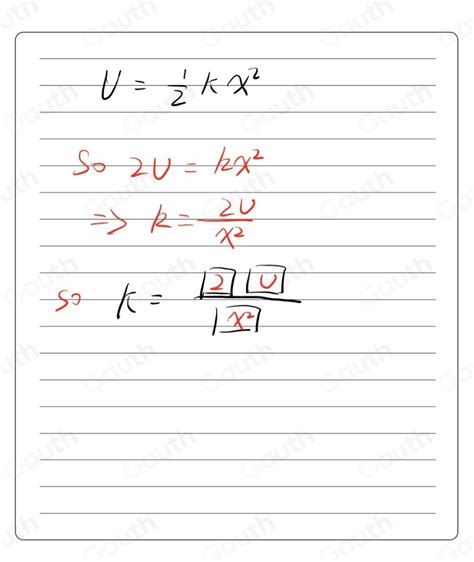 U = 1/2 k x²
So 2U = kx²
=> k = 2U/x²
so k = 2 U / x²